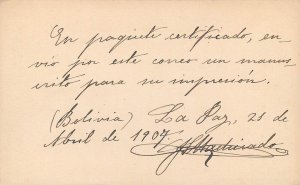 En paquete certificado, en-
vío por este correo un manus-
crito para su impresión.
(Bolivia) La Paz, 21 de
Abril de 1907